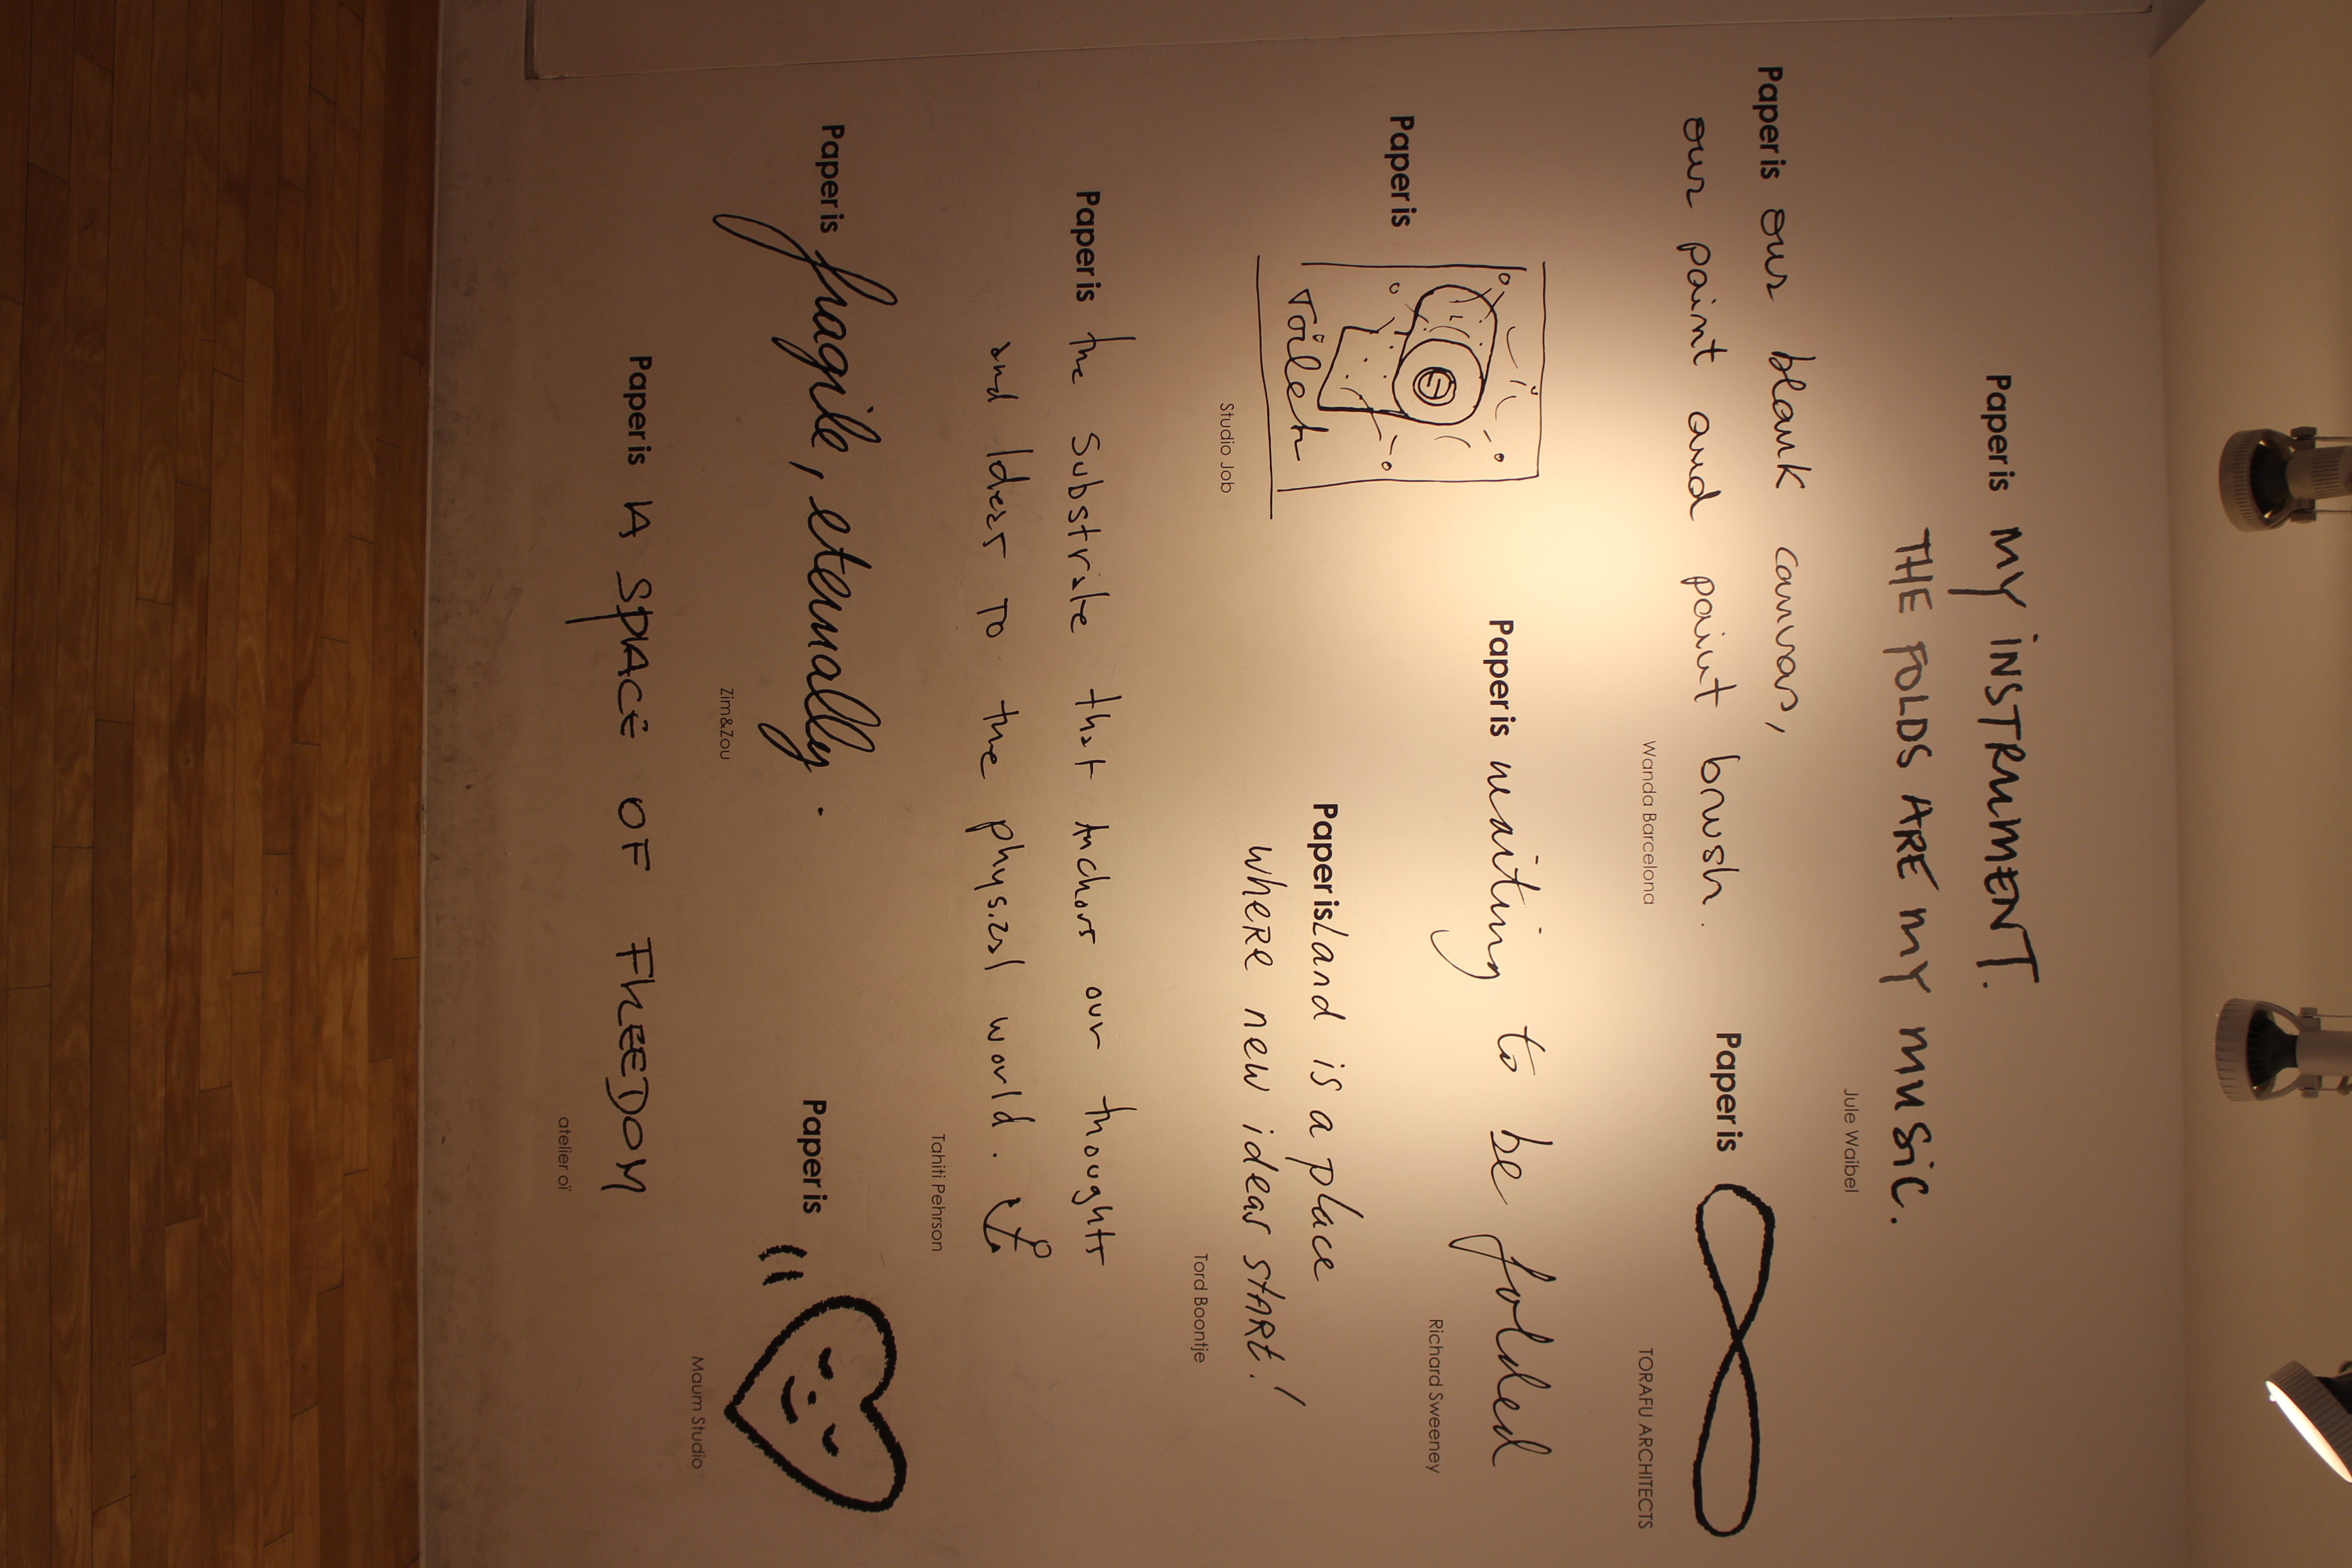 Paper is MY iNSTRUMENT.
THE FOLDS ARE MY MUSiC.
Jule Waibel
Paper is our blank canvas,
our paint and paint brush.
Wanda Barcelona
Paper is
TORAFU ARCHITECTS
Paper is
Toilet
Studio Job
Paper is waiting to be folded
Richard Sweeney
Paper is Land is a place
where new ideas start!
Tord Boontje
Paper is the Substrate that Anchors our thoughts
and Ideas To the physical world.
Tahiti Pehrson
Paper is fragile, eternally.
Zim&Zou
Paper is
Maum Studio
Paper is A SPACE OF FREEDOM
atelier oï